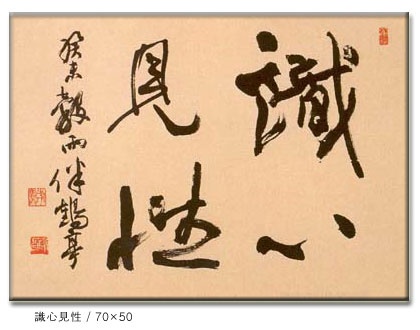 識心
見性
癸未穀雨伴鶴亭
識心見性 / 70×50